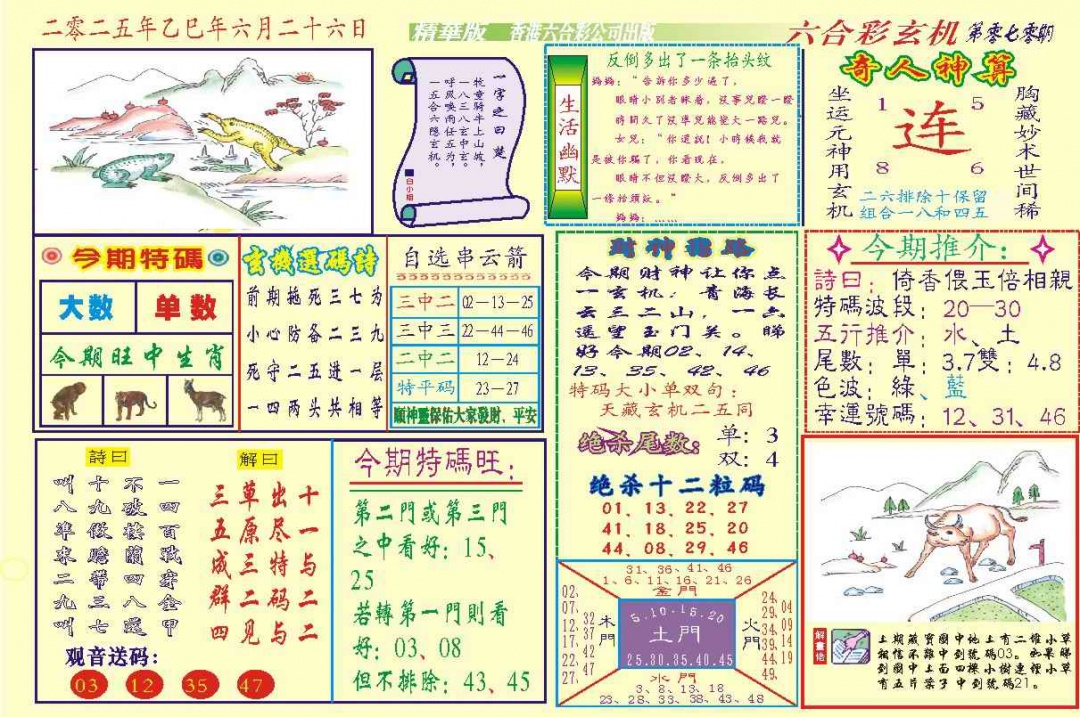 二零二五年乙巳年六月二十六日
精華版 香港六合彩公司出版
六合彩玄机 第零七零期
一字之曰楚
牧童骑牛上山坡，
一八三八玄中玄。
呼风唤雨任五为，
一五合六隐玄机。
白小姐
生活幽默
反倒多出了一条抬头纹
媽媽：“告訴你多少遍了，
眼睛小别老眯着，没事兒瞪一瞪
時間久了没準兒能變大一點兒。
女兒：“你還説！小時候我就
是被你騙了，你看現在，
眼睛不但没瞪大，反倒多出了
一條抬頭紋。”
媽媽：……
奇人神算
坐运元神用玄机
1 5
连
8 6
胸藏妙术世间稀
二六排除十保留
组合一八和四五
今期特碼
大数 单数
今期旺中生肖
玄機選碼詩
前期拖死三七为
小心防备二三九
死守二五进一层
一四两头共相等
自选串云箭
三中二 02—13—25
三中三 22—44—46
二中二 12—24
特平码 23—27
顺神靈保佑大家發財、平安
财神密路
今期财神让你点
一玄机：青海长
云三二山，一点
遥望玉门关。睇
好今期02、14、
13、35、42、46
特码大小单双句：
天藏玄机二五同
绝杀尾数： 单：3
双：4
绝杀十二粒码
01、13、22、27
41、18、25、20
44、08、29、46
今期推介：
詩曰：倚香偎玉倍相親
特碼波段：20—30
五行推介：水、土
尾數：單：3.7雙：4.8
色波：綠、藍
幸運號碼：12、31、46
詩曰
一四百戰穿金甲
不破楼蘭四八還
十九假膽帶三七
叫八準来二九叫
解曰
十一与二二
出尽特码与
草原三二见
三五成群四
观音送码：
03 12 35 47
今期特碼旺：
第二門或第三門
之中看好：15、
25
若轉第一門則看
好：03、08
但不排除：43、45
31、36、41、46
1、6、11、16、21、26
金門
02、07、12、17、22、27、
32、37、42、47
木門
5.10.15.20
土門
25.30.35.40.45
火門
24、29、34、39、44、49、
04、09、14、19
水門
3、8、13、18
23、28、33、38、43、48
解畫信
上期藏寶圖中地上有二堆小草
相信不難中到號碼03。如果睇
到圖中上面四棵小樹連徑小草
有五片葉子中到號碼21。